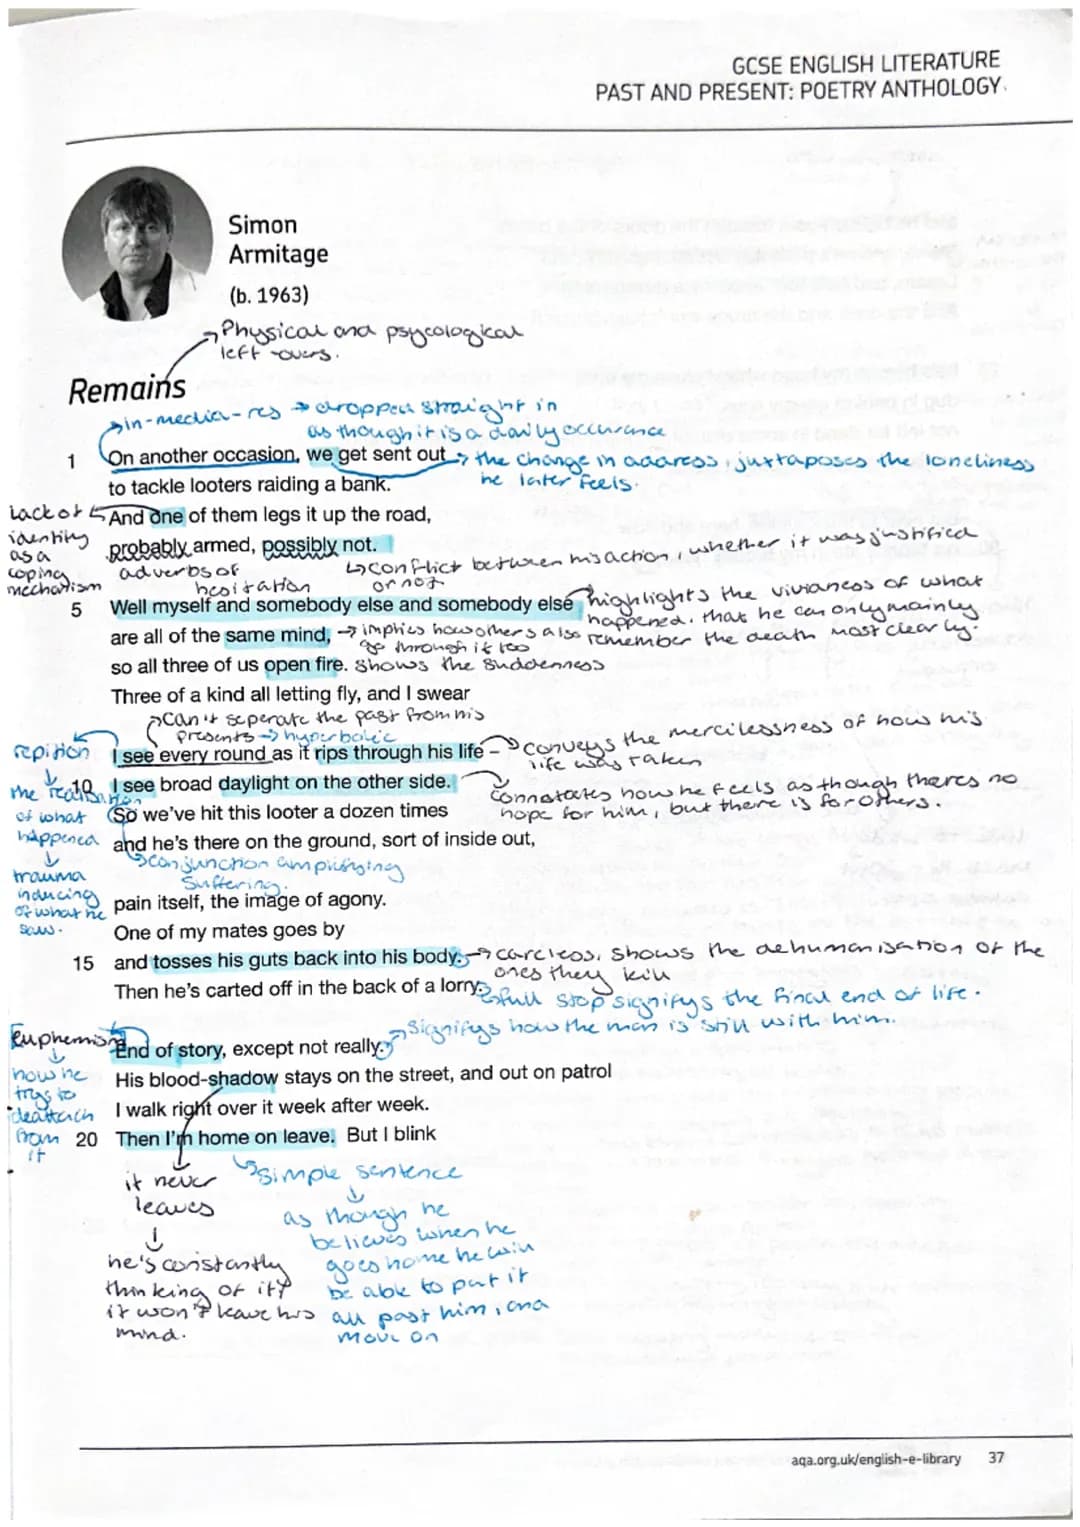 GCSE ENGLISH LITERATURE
PAST AND PRESENT: POETRY ANTHOLOGY
Simon
Armitage
(b. 1963)
Physical and psycological
left-overs.
Remains
in-media-res → dropped straight in
as though it is a daily occurance
1 On another occasion, we get sent out → the change in address, juxtaposes the loneliness
he later feels.
to tackle looters raiding a bank.
lack of
identity
as a
coping
mechadism
And one of them legs it up the road,
probably armed, possibly not.
adverbs of
hesitation
conflict between his action, whether it was justified
or not
5 Well myself and somebody else and somebody else
highlights the vividness of what
happened, that he can only mainly
remember the death most clearly.
are all of the same mind, → implies how others also
go through it too
so all three of us open fire. shows the suddenness
Three of a kind all letting fly, and I swear
can't seperate the past from his
presents → hyperbolic
repition
the realisation
of what
happened
trauma
inducing
of what he
saw.
I see every round as it rips through his life –
conveys the mercilessness of how his
life was taken
10 I see broad daylight on the other side.
connotates how he feels as though theres no
hope for him, but there is for others.
So we've hit this looter a dozen times
and he's there on the ground, sort of inside out,
conjunction amplifying
suffering.
pain itself, the image of agony.
One of my mates goes by
15 and tosses his guts back into his body. → careless, shows the dehumanisation of the
ones they kill
Then he's carted off in the back of a lorry.
full stop signifys the final end of life.
Euphemism
how he
trys to
deattach
from
it
signifys how the man is still with him.
End of story, except not really.
His blood-shadow stays on the street, and out on patrol
I walk right over it week after week.
20 Then I'm home on leave. But I blink
it never
leaves
he's constantly
thinking of it,
it won't leave his
mind.
simple sentence
as though he
believes when he
goes home he will
be able to put it
all past him, and
move on
aqa.org.uk/english-e-library 37